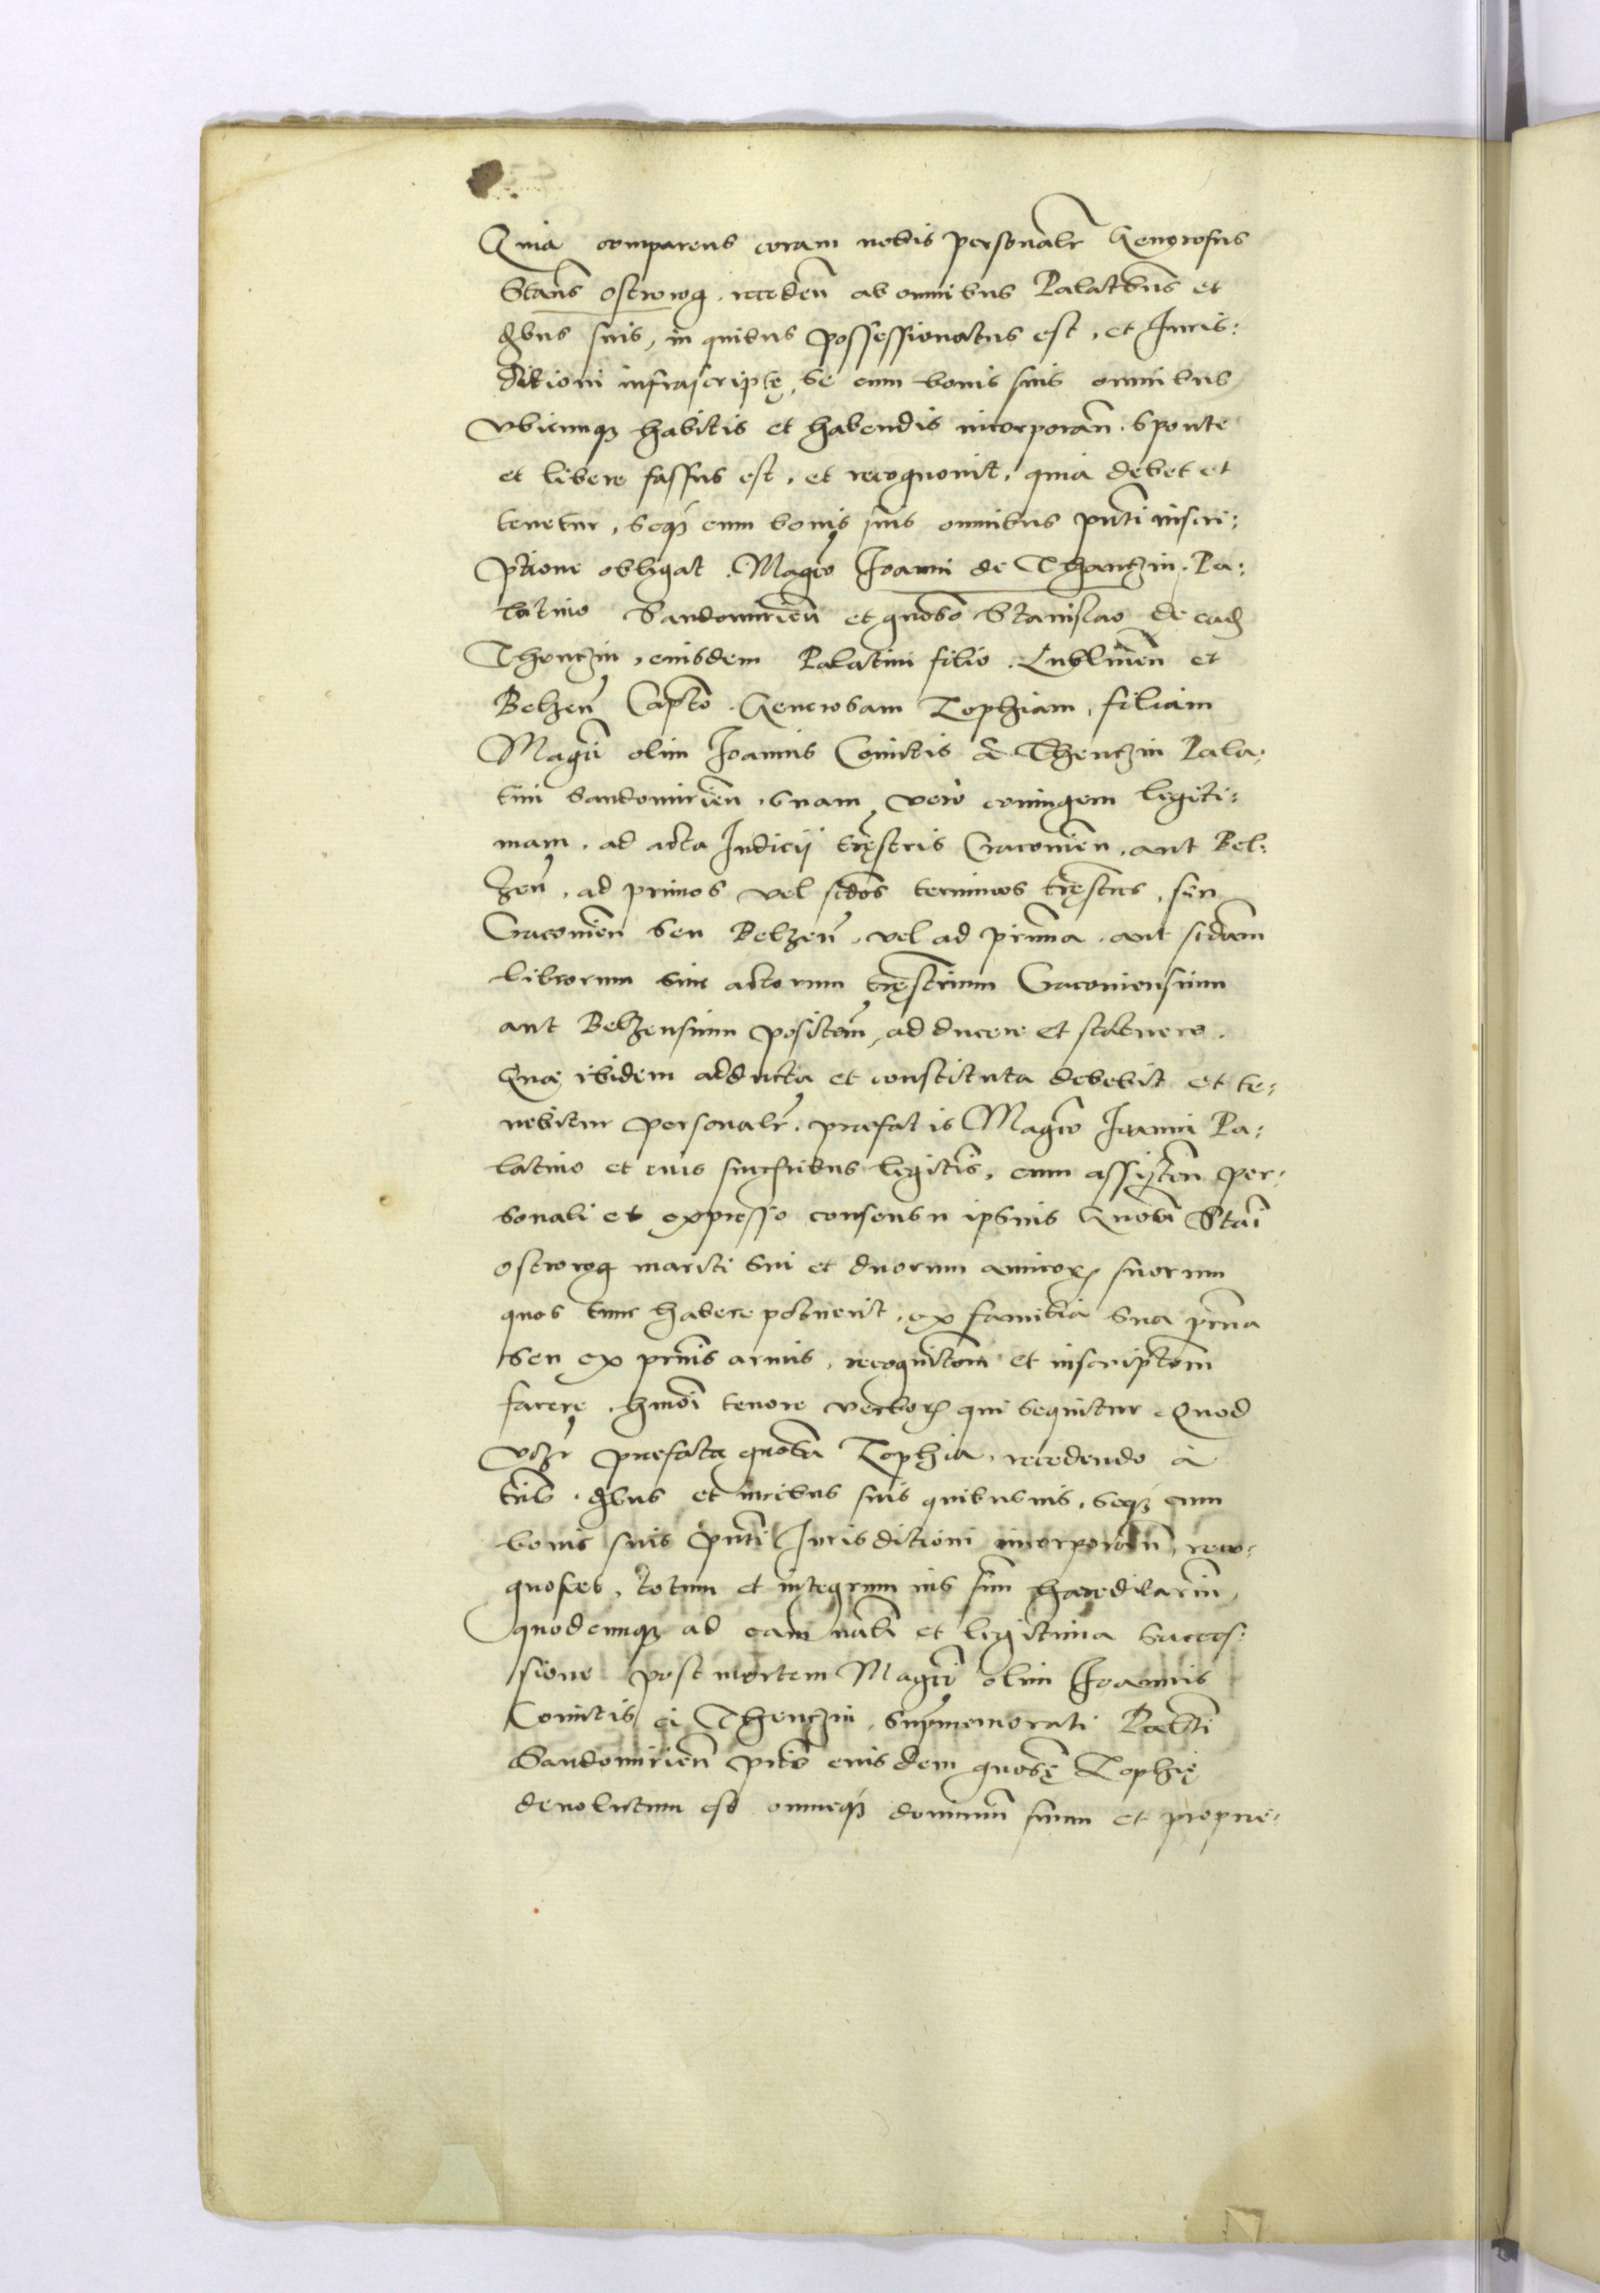 Quia comparens coram nobis personalr Generosus
Stans Ostrorog, receden ab omnibus Palatbus et
dbus suis, in quibus possessionatus est, et Juris:
ditioni infrascriptę, se cum bonis suis omnibus
vbicunq habitis et habendis incorporan. Sponte
et libere fassus est, et recognovit, quia debet et
tenetur, seq cum bonis suis omnibus pnti inscri:
ptione obligat. Magco Joanni de Thantzin. Pa:
latino Sandomirien et gnoso Stanislao de ead
Thentzin, eiusdem Palatini filio. Lublinen et
Belzen Capto. Generosam Zophiam, filiam
Magci olim Joannis Comitis a Thentzin Pala:
tini Sandomirien, suam vero coniugem legiti:
mam, ad acta Judicij tręstris Cracovien, aut Bel:
zen, ad primos vel scdos terminos tręstres, siue
Cracovien seu Belzen, vel ad primam aut scdam
librorum siue actorum tręstrium Cracouiensium
aut Belzensium positom, adducere et statuere.
Quę ibidem adducta et constituta debebit et te:
nebitur personalr. praefatis Magco Joanni Pa:
latino et eius succribus legitis, cum assisten per:
sonali et expresso consensu ipsius Gnosi Stai
Ostrorog mariti sui et duorum amicor suorum
quos tunc habere potuerit, ex familia sua prna
seu ex prnis armis, recognitom et inscriptom
facere, hmoi tenore verbor qui sequitur. Quod
vdz praefata gnosa Zophia, recedendo à
trib. dbus et iuribus suis quibusuis, seq cum
bonis suis pnti Jurisditioni incorporan, reco:
gnoscet, totum et integrum ius suu haereditariu,
quodcunq ad eam nali et legittima succes:
sione post mortem Magci olim Joannis
Comitis à Thentzin, supmemorati Palati
Sandomirien pris eiusdem gnosę Zophię
deuolutum est omneq dominiu suum et proprie: